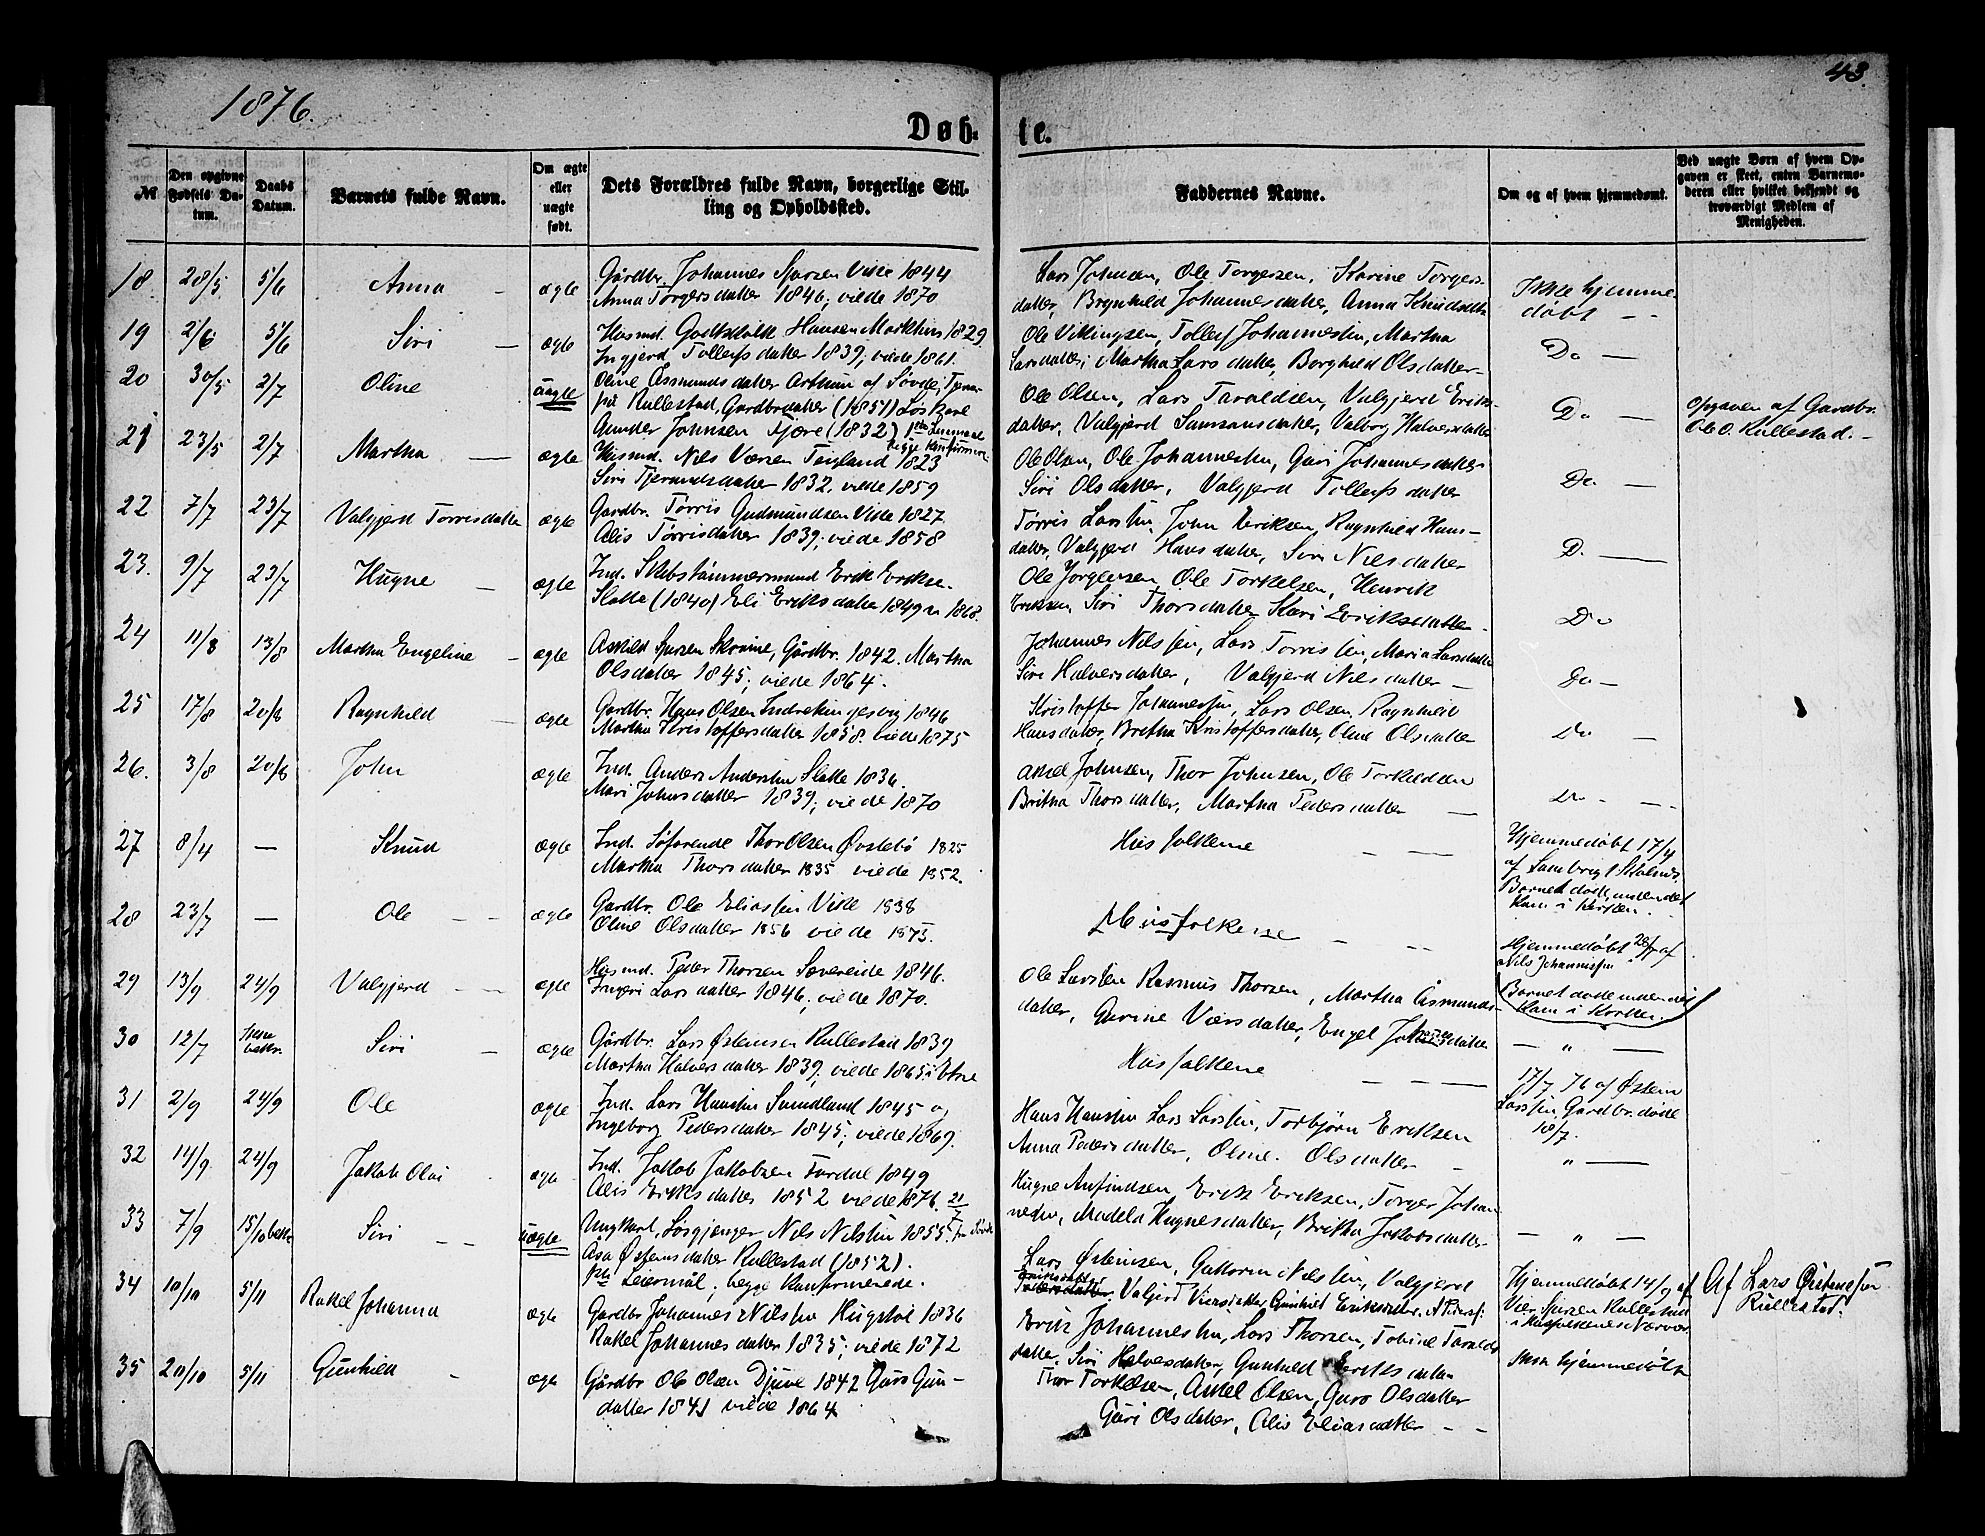 1876.
43.
Døb-
te.
№
Den opgivne Fødsels Datum.
Daabs Datum.
Barnets fulde Navn.
Om ægte eller uægte født.
Dets Forældres fulde Navn, borgerlige Stilling og Opholdssted.
Faddernes Navne.
Om og af hvem hjemmedøbt.
Ved uægte Børn af hvem Opgaven er skeet, enten Barnemoderen eller hvilket bekjendt og troværdigt Medlem af Menigheden.
18. 28/5 5/6 Anna – ægte
Gårdbr. Johannes Sjursen Vike 1844
Anna Torgersdatter 1846; viede 1870
Lars Johnsen, Ole Torgersen, Karine Torgers-
datter, Brynhild Johannesdatter, Anna Knudsdatter
Ikke hjemme-
døbt – –
19 2/6 5/6 Siri – ægte
Husmd. Godtskalk Hansen Markhus 1829
Ingjerd Tollefsdatter 1839; viede 1861.
Ole Vikingsen, Tollef Johannessen, Martha
Larsdatter; Martha Larsdatter, Borghild Olsdatter
Do –
20 30/5 2/7 Oline uægte
Oline Åsmundsdatter af Søvde, Tjene
på Rullestad, Gardbrdatter (1851) Løskarl
Gunder Johnsen Fjære (1832) 1ste Leiermaal
begge Konfirmere
Ole Olsen, Lars Taraldsen, Valgjerd Eriks-
datter, Valgjerd Samsonsdatter, Valborg Halvorsdatter
Do –
Opgaven af Gardbr.
Ole O. Rullestad. –
21 23/5 2/7 Martha – ægte
Husmd. Nils Værsen Teigland 1823
Siri Tjerandsdatter 1832, viede 1859
Ole Olsen, Ole Johannessen, Guri Johannesdatter
Siri Olsdatter, Valgjerd Tollefsdatter
Do –
22 7/7 23/7 Valgjerd Torrisdatter ægte
Gardbr. Tørris Gudmundsen Vike 1827
Alis Tørrisdatter 1839; viede 1858
Tørris Larssen, John Eriksen, Ragnhild Hans-
datter, Valgjerd Hansdatter, Siri Nilsdatter
D. –
23. 9/7 23/7 Hugne – ægte
Ind. Skibstømmermand Erik Eriks.
Slatte (1840) Eli Eriksdatter 1849 v 1868.
Ole Jørgensen, Ole Torkelsen, Henrik
Eriksen, Siri Thorsdatter Kari Eriksdatter –
Do
24 11/8 13/8 Martha Engeline – ægte
Askild Sjursen Skromme, Gårdbr. 1842. Martha
Olsdatter 1845; viede 1864.
Johannes Nilssen, Lars Torrissen, Maria Larsdatter
Siri Halversdatter, Valgjerd Nilsdatter –
Do –
25 17/8 20/8 Ragnhild – ægte
Gardbr. Hans Olsen 1846
Martha Kristoffersdatter 1858. viede 1875
Kristoffer Johannessen, Lars Olsen, Ragnhild
Hansdatter, Britha Kristoffersdatter, Oline Olsdatter
Do –
26. 3/8 20/8 John ægte
Ind. Anders Anderssen Slatte 1836
Mari Johnsdatter 1839; viede 1870
Askel Johnsen, Thor Johnsen, Ole Torkildsen
Britha Thorsdatter, Martha Pedersdatter –
Do – –
27 8/4 – Knud ægte
Ind. Søfarende Thor Olsen Øvstebø 1825
Martha Thorsdatter 1835 viede 1852.
Husfolkene – –
Hjemmedøbt 17/4
af Lambrigt
Barnet døde, inden det
kom i Kirken.
28 23/7 – Ole – – ægte
Gardbr. Ole Eliassen Vike 1838
Oline Olsdatter 1856 viede 1873.
Husfolkene – –
Hjemmedøbt 28/7 af
Nils Johannissen
Barnet døde inden det
kom i Kirken.
29 13/9 24/9 Valgjerd – – ægte
Husmd. Peder Thorsen Sævereide 1846.
Ingeri Larsdatter 1846; viede 1870.
Ole Larssen Rasmus Thorsen, Martha Åsmunds-
datter, Gurine Værsdatter, Engel Johnsdatter
– „ –
30 12/7 Ikke bekr. Siri – ægte
Gårdbr. Lars Østensen Rullestad 1839
Martha Halversdatter 1839; viede 1865 i Etne
Husfolkene – – –
17/7 76 af Østen
Larssen, Gardbr. døde
18/7.
31 2/9 24/9 Ole ægte
Ind. Lars Hanssen Sundland 1845 og
Ingeborg Pedersdatter 1845; viede 1869.
Hans Hanssen Lars Larssen, Torbjørn Eriksen
Anna Pedersdatter, Oline Olsdatter –
„ –
32 14/9 24/9 Jakob Olai ægte
Ind. Jakob Jakobsen Fardal 1849
Alis Eriksdatter 1852 viede 1876. 21/7
Hugne Anfindsen, Erik Eriksen, Torger Johan-
nesen, Madela Hugnesdatter, Britha Jakobsdatter
– „ –
33 7/9 15/10 bekr Siri – – uægte
Ungkarl, Løsgjenger Nils Nilssen 1855 fra Søvde
Åsa Østensdatter Rullestad (1852).
1ste Leiermål, begge Konfirmerede.
Lars Østensen, Guttorm Nilssen, Valgjerd
Eriksdatter, Valgjerd Viersdatter, Gunhild Eriksdatter, A. Peders.
Hjemmedøbt 14/9 af
Vier Sjursen Rullestad
i Husfolkenes Nærvær
Af Lars Østensen
Rullestad.
34 10/10 5/11 Rakel Johanna ægte
Gardbr. Johannes Nilssen Hugstøl 1836
Rakel Johannesdatter 1835; viede 1872
Erik Johannessen, Lars Thorsen, Tobine Taralds
datter, Siri Halvesdatter, Gunhild Eriksdatter
Ikke hjemmedøbt
35 20/10 5/11 Gunhild – ægte
Gårdbr Ole Olsen Djuve 1842 Guro Gun-
datter 1841 viede 1864
Thor Torkelsen, Askel Olsen, Guro Olsdatter
Guri Olsdatter, Alis Eliasdatter – –